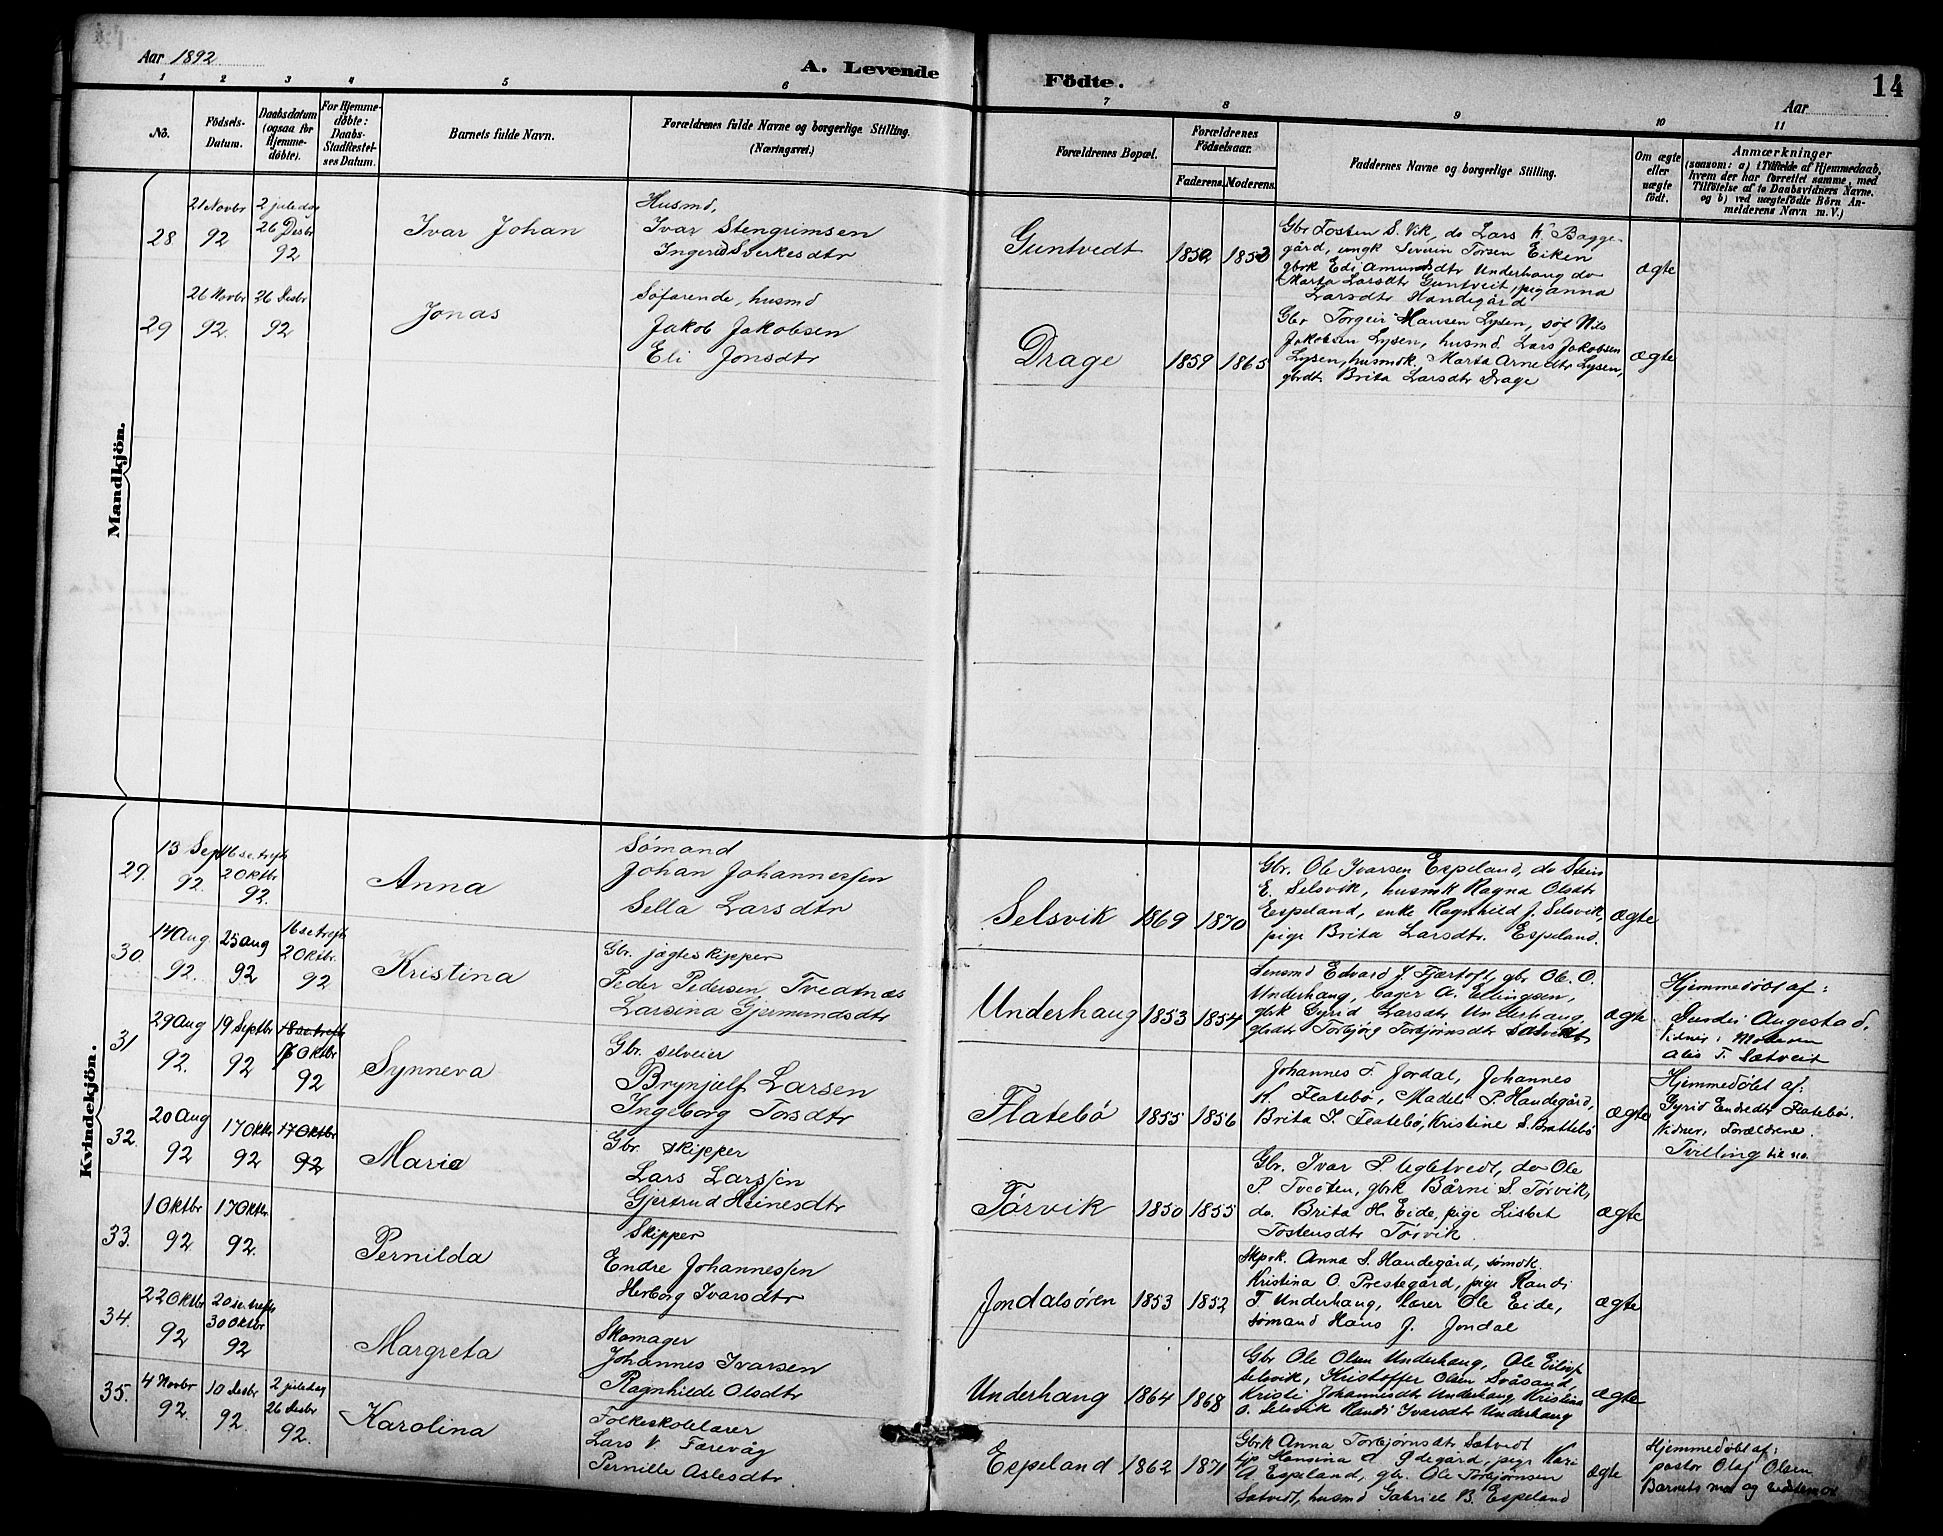 Aar 1892
A. Levende Födte.
14
Aar
1 2 3 4 5 6 7 8 9 10 11
No.
Födsels-
Datum.
Daabsdatum
(ogsaa for
Hjemme-
døbte).
For Hjemme-
döbte:
Daabs-
Stadfæstel-
ses Datum.
Barnets fulde Navn.
Forældrenes fulde Navne og borgerlige Stilling.
(Næringsvei.)
Forældrenes Bopæl.
Forældrenes
Födselsaar.
Faderens. Moderens.
Faddernes Navne og borgerlige Stilling.
Om ægte
eller
uægte
født.
Anmærkninger
(saasom: a) i Tilfælde af Hjemmedaab,
hvem der har forrettet samme, med
Tilföielse af to Daabsvidners Navne.
og b) ved uægtefödte Börn An-
melderens Navn m. V.)
Mandkjön.
28
21 Novbr
92
2 juledag
26 Desbr
92
Ivar Johan
Husmd,
Ivar Stengrimsen
Ingerid Sverkesdtr
Guntvedt
1852 1853
Gbr Tosten S. Vik, do Lars K. Bagge-
gård, ungk Severin Torsen Eiken
gbrk Edi Amundsdtr Underhaug do
Marta Larsdtr Guntveit, pig Anna
Larsdtr Handegård
ægte
29
26 Novbr
92.
26 Desbr
92
Jonas
Söfarende, husmd
Jakob Jakobsen
Eli Jonsdtr
Drage
1859 1865
Gbr Torgeir Hansen Lysen, söf Nils
Jakobsen Lysen, husmd Lars Jakobsen
Lysen, husmdk Marta Arnedtr Lysen,
gbrdt Brita Larsdtr Drage
ægte
Kvindekjön.
29.
13 Sept
92.
16 se. trefh
2 Oktbr
92.
Anna
Sømand
Johan Johannessen
Sella Larsdtr
Selsvik
1869 1870
Gbr. Ole Ivarsen Espeland, do Stein
E. Selsvik, husmk Ragna Olsdtr
Espeland, enke Ragnhild J. Selsvik,
pige Brita Larsdtr. Espeland.
ægte
30
14 Aug
92.
25 aug
92
16 se trefh
2 Oktbr.
92
Kristina
Gbr. jægteskipper
Peder Pedersen Tvedtnæs
Larsina Gjermundsdtr
Underhaug
1853 1854
Lensmd Edvard J. Fjærtoft, gbr Ole O.
Underhaug, bager A. Ellingsen,
gbrk Gyrid Larsdtr Underhaug,
gbrdtr Torbjörg Torbjörnsdtr Sætvedt
ægte
Hjemmedöbt af:
Augestad.
Vidner: Moderen
T. Sætveit
31
29 Aug
92.
19 Septbr
92
18 se trefh
16 Oktbr
92
Synneva
Gbr. selveier
Brynjulf Larsen
Ingeborg Torsdtr
Flatebö
1855 1856
Johannes T. Jordal, Johannes
K. Flatebö, Madel P. Handegård,
Brita I. Flatebö, Kristine S. Brattebö
ægte
Hjemmedöbt af:
Gyrid Endredtr Flatebö.
Vidner, Forældrene.
Tvilling til no.
32.
20 Aug
92
17 Oktr
92
17 Oktbr
92
Marie
Gbr. skipper
Lars Larssen
Gjertrud Heinesdtr
Törvik
1850 1855
Gbr. Ivar P. Ugletvedt, do Ole
P. Tveiten, gbrk Bårni S. Törvik,
do. Brita H. Eide, pige Lisbet
Tostensdtr Törvik.
ægte
33.
1 Oktbr
92
17 Oktr
92.
Pernilda
Skipper
Endre Johannessen
Herborg Ivarsdtr
Jondalsören
1853 1852
Skpsk. Anna S. Handegård, sömdk.
Kristina O. Prestegård, pige Randi
T. Underhaug, lærer Ole Eide,
sømand Hans J. Jondal
ægte
34.
22 Oktbr
92
20 se. trefh
30 Oktbr
92
Margreta
Skomager
Johannes Ivarsen
Ragnhilde Olsdtr
Underhaug
1864 1868
Gbr Ole Olsen Underhaug, Ole Eilivs
Selsvik, Kristoffer Olsen Svåsand,
Kristi Johannesdtr Underhaug, Kristina
O. Selsvik Randi Ivarsdtr Underhaug
ægte
35.
4 Novbr
92.
10 Desbr
92.
2 juledag
26 Desbr
92.
Karolina
Folkeskolelærer
Lars V. Færevåg
Pernille Aslesdtr
Espeland
1862 1871
Gbrk Anna Torbjørnsdtr Sætvedt
Hansina A. Ødegård, pige Kari
A. Espeland, gbr. Ole Torbjørnsen
Sætvedt, husmd Gabriel B. Espeland
ægte
Hjemmedöbt af:
pastor Olaf Olsen
Barnets mor og